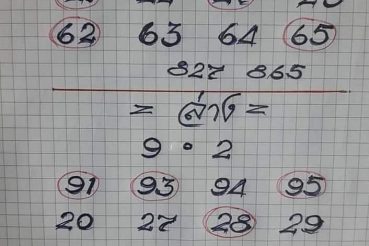 62 63 64 65
827 865
= ล่าง =
9 • 2
91 93 94 95
20 27 28 29